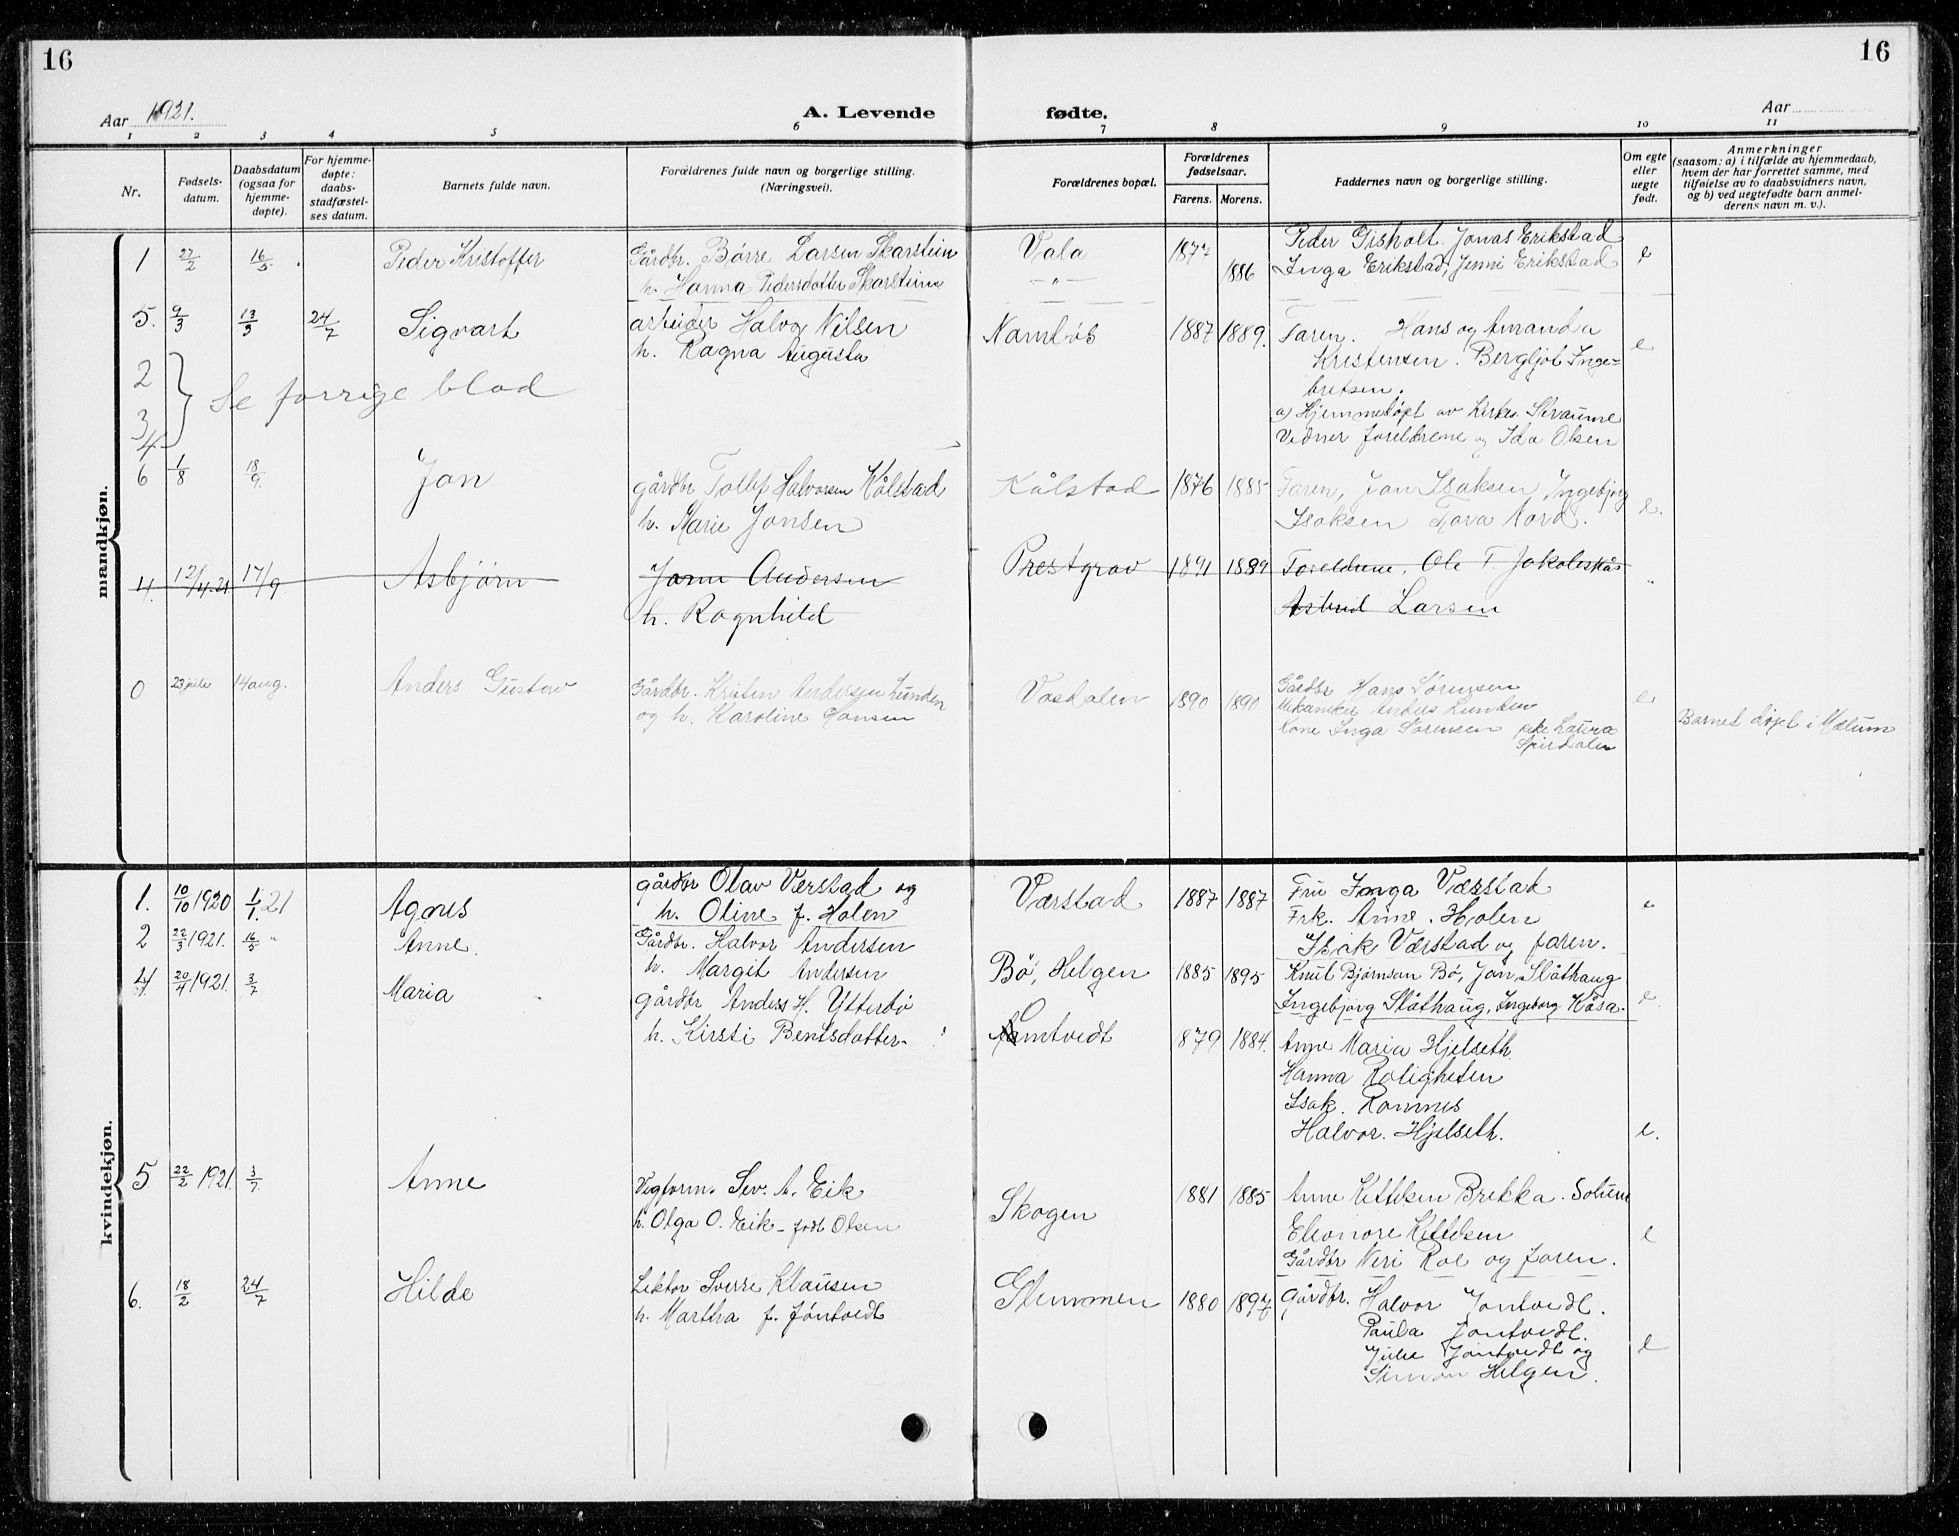 16
16
Aar 1921.
A. Levende fødte.
Aar
1 2 3 4 5 6 7 8 9 10 11
Nr.
Fødsels-
datum.
Daabsdatum
(ogsaa for
hjemme-
døpte).
For hjemme-
døpte:
daabs-
stadfæstel-
ses datum.
Barnets fulde navn.
Forældrenes fulde navn og borgerlige stilling.
(Næringsvei).
Forældrenes bopæl.
Forældrenes
fødselsaar.
Farens. Morens.
Faddernes navn og borgerlige stilling.
Om egte
eller
uegte
født.
Anmerkninger
(saasom: a) i tilfælde av hjemmedaab,
hvem der har forrettet samme, med
tilføielse av to daabsvidners navn,
og b) ved uegtefødte barn anmel-
derens navn m. v.).
mandkjøn.
1 27/2 16/5 Peder Kristoffer Gårdbr. Børre Larsen Skarstein Vala 1877 Peder Gisholt. Jonas Erikstad e
h. Hanna Pedersdatter Skarstein — " — 1886 Inga Erikstad, Jenni Erikstad
5. 9/3 13/3 24/7 Sigvart arbeider Halvor Nilsen Namløs 1887 1889. Faren. Hans og Amanda e
h. Ragna Augusta Kristensen. Bergljot Inge-
bretsen.
2
3
4
Se forrige blad
a) Hjemmedøpt av Kirkes. Straume
Vidner foreldrene og Ida Olsen
6 1/8 18/9 Jon gårdbr Tollef Halvorsen Kålstad Kålstad 1876 1885 Faren, Jon Isaksen Ingebjørg e.
h. Marie Jonsen Isaksen Tora Nord.
4. 12/4.21 17/9 Asbjørn Jorm Andersen Prestgrav 1891 1889 Foreldrene. Ole T. Jakobskås "
h. Ragnhild Astrid Larsen
0 23 juli 14 aug. Anders Gustav Gårdbr. Kristen Andersen Lunden Vasdalen 1890 1890 Gårdbr Hans Sørensen e
og h. Karoline Hansen Mekaniker Anders Lunden
Kone Inga Sørensen pike Laura
Spirdalen
Barnet døpt i Mælum
kvindekjøn.
1. 10/10 1920 1/1.21 Agnes gårdbr Olav Værstad og Værstad 1887 1887 Fru Inga Værstad e
h. Oline f. Holen Frk. Anne. Holen
Isak Værstad og faren.
2 22/3 1921. 16/5 " Anne. Gårdbr. Halvor Andersen Bø, Helgen 1885 1895 Knut Bjørnson Bø, Jon Slåthaug e
h. Margit Andersen Ingebjørg Slåthaug, Ingeborg Kåsa.
4. 20/4 1921. 3/7 Maria gårdbr Anders H. Ytterbø Namtvedt 1879 1884. Anne Maria Hjelseth
h. Kirsti Bentsdatter. Hanna Roligheten
Isak. Romnes
Halvor. Hjelseth. e.
5 22/2 1921. 3/7 Anne Vegform. Sev. A. Eik Skogen 1881 1885 Anne Kittilsen Brekka. Solum
h. Olga O. Eik - født Olsen Eleonore Kittilsen e
Gårdbr Neri Roe og Faren.
6. 18/2 24/7 Hilde Lektor Sverre Klausen Stemmen 1880 1897 gårdbr. Halvor Jøntvedt.
h. Martha f. Jøntvedt Paula Jøntvedt.
Julie Jøntvedt og e
Simon Helgen.